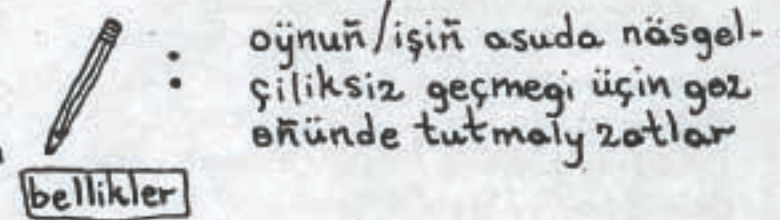 : oýnuň/işiň asuda näsgel-
çiliksiz geçmegi üçin goz
öňünde tutmaly zatlar
bellikler